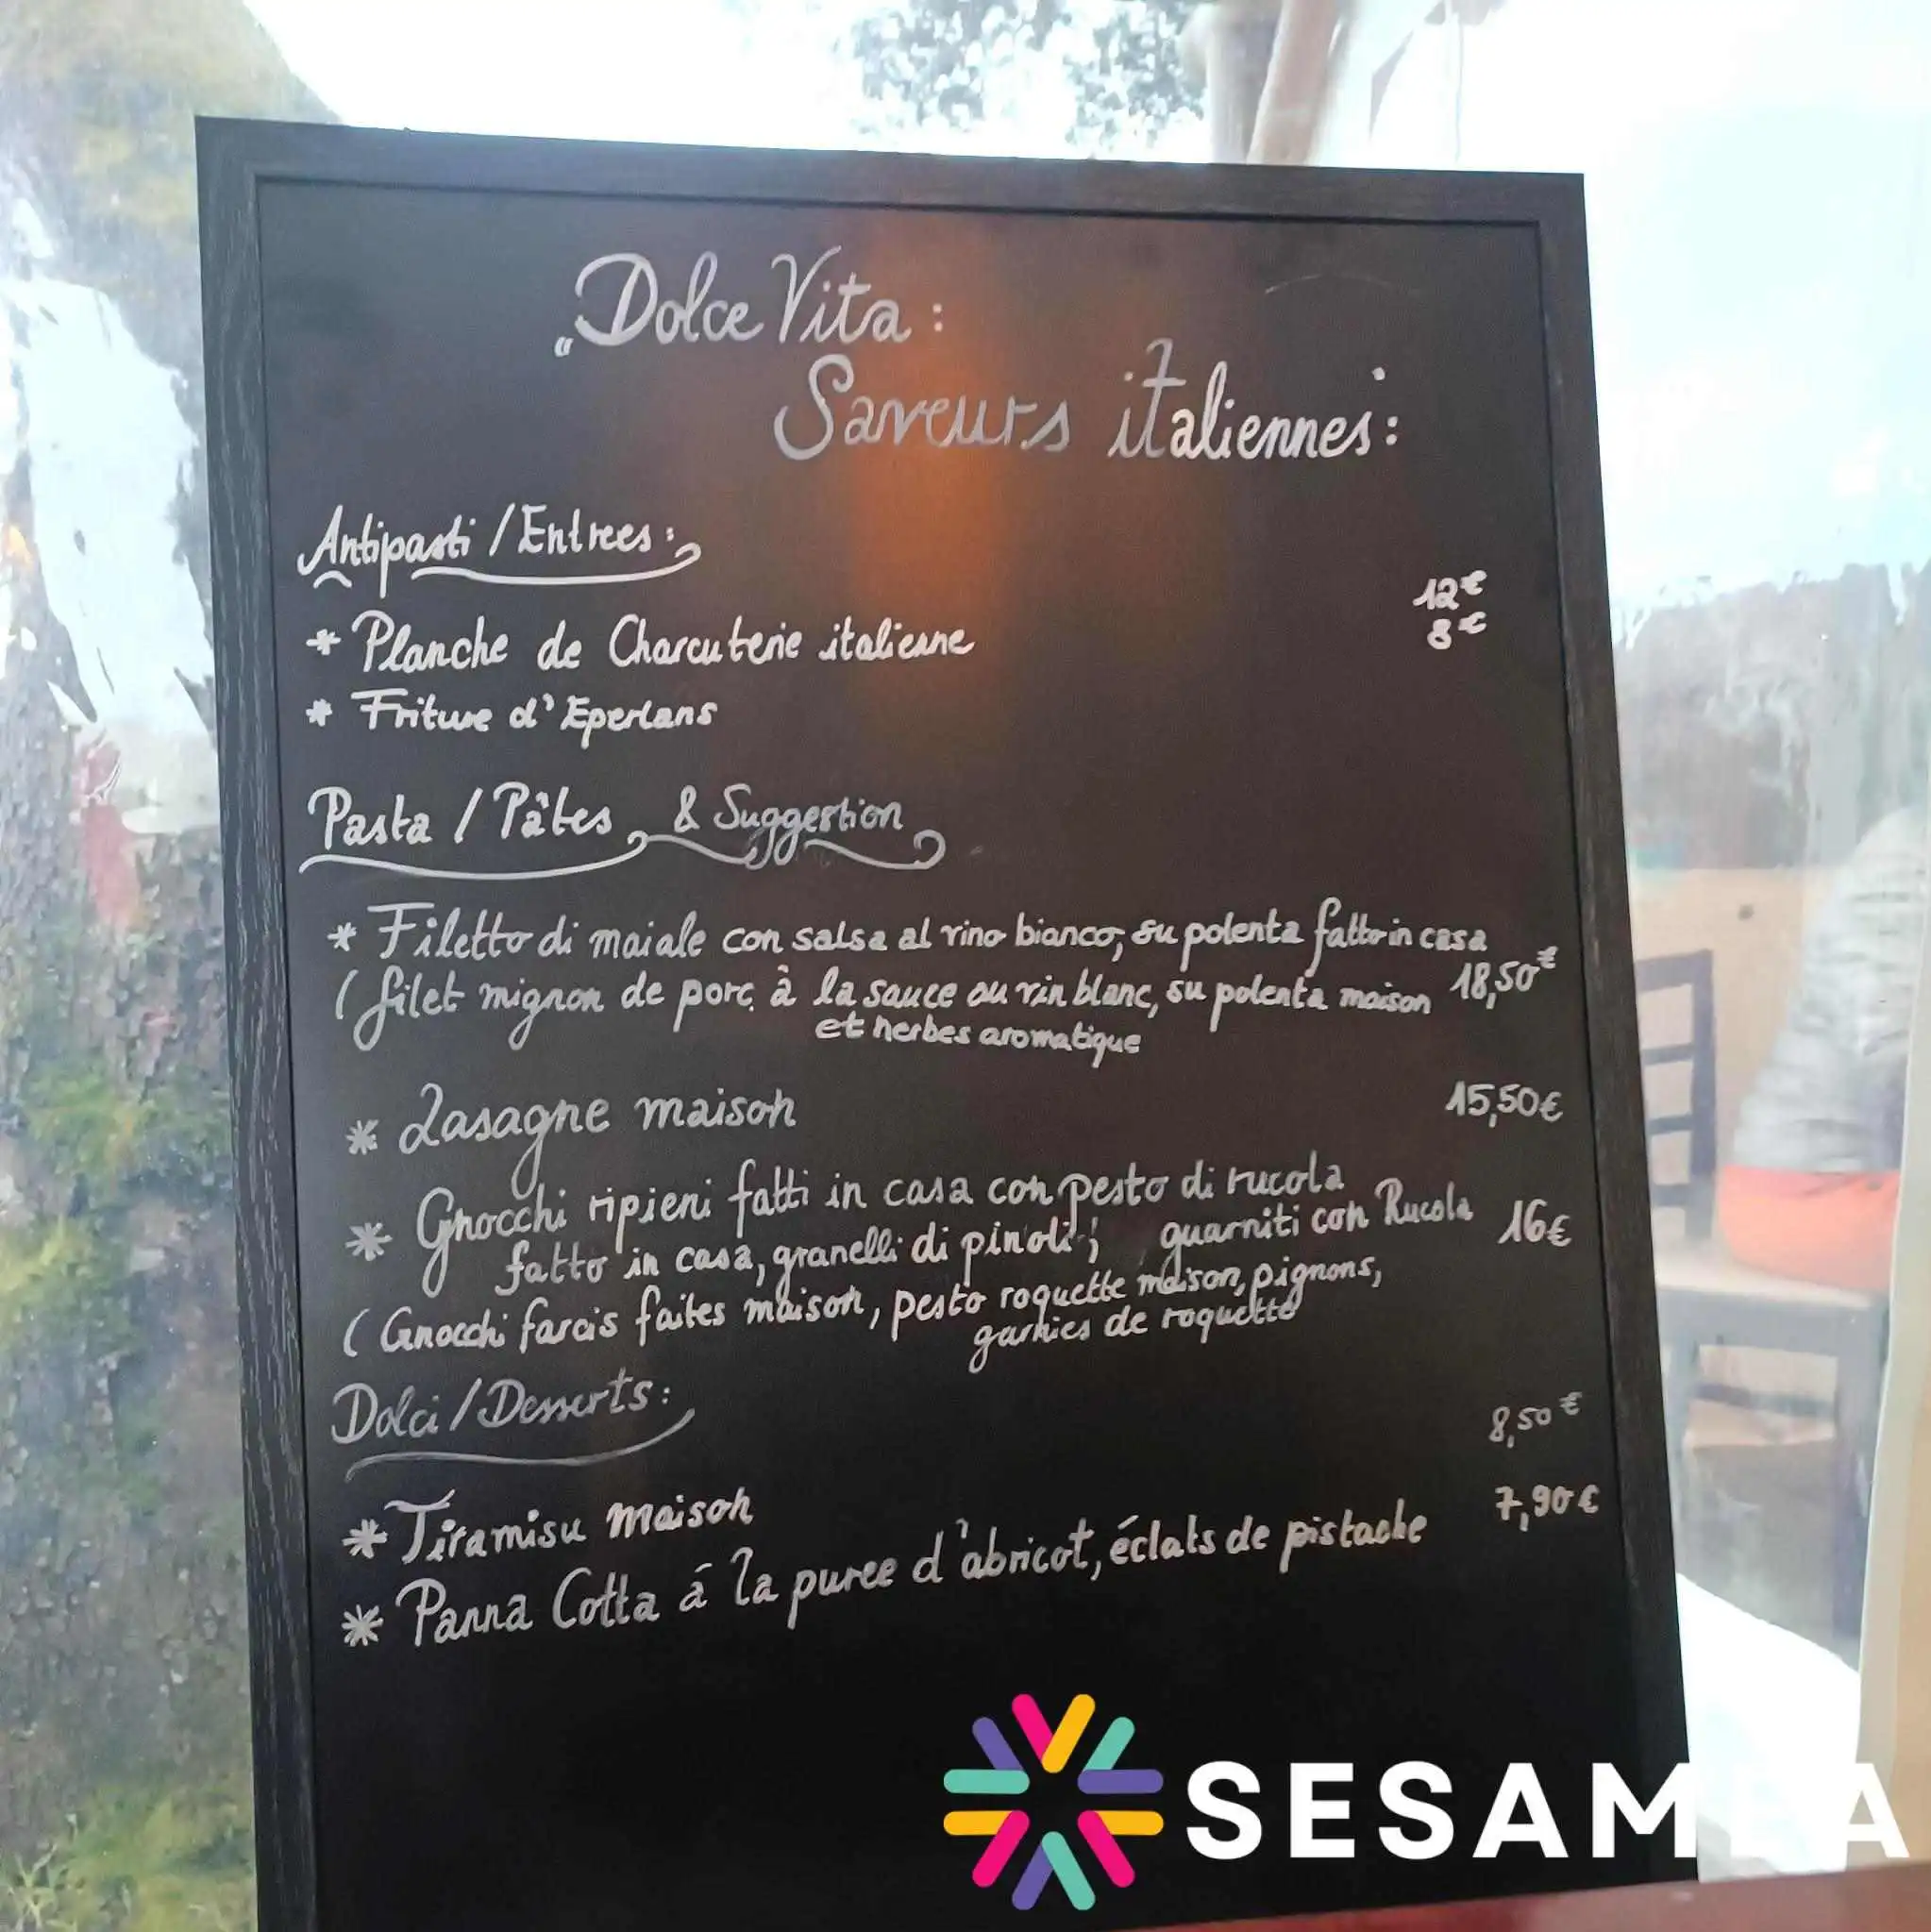 „Dolce Vita :
Saveurs italiennes :
Antipasti / Entrees :
12€
* Planche de Charcuterie italienne
8€
* Friture d'Eperlans
Pasta / Pâtes & Suggestion
* Filetto di maiale con salsa al vino bianco, su polenta fatto in casa
( filet mignon de porc à la sauce au vin blanc, su polenta maison 18,50€
et herbes aromatique
* Lasagne maison 15,50€
* Gnocchi ripieni fatti in casa con pesto di rucola
fatto in casa, granelli di pinoli ; guarniti con Rucola 16€
( Gnocchi farcis faites maison, pesto roquette maison, pignons,
garnies de roquette
Dolci / Desserts :
8,50€
* Tiramisu maison
7,90€
* Panna Cotta á la puree d'abricot, éclats de pistache